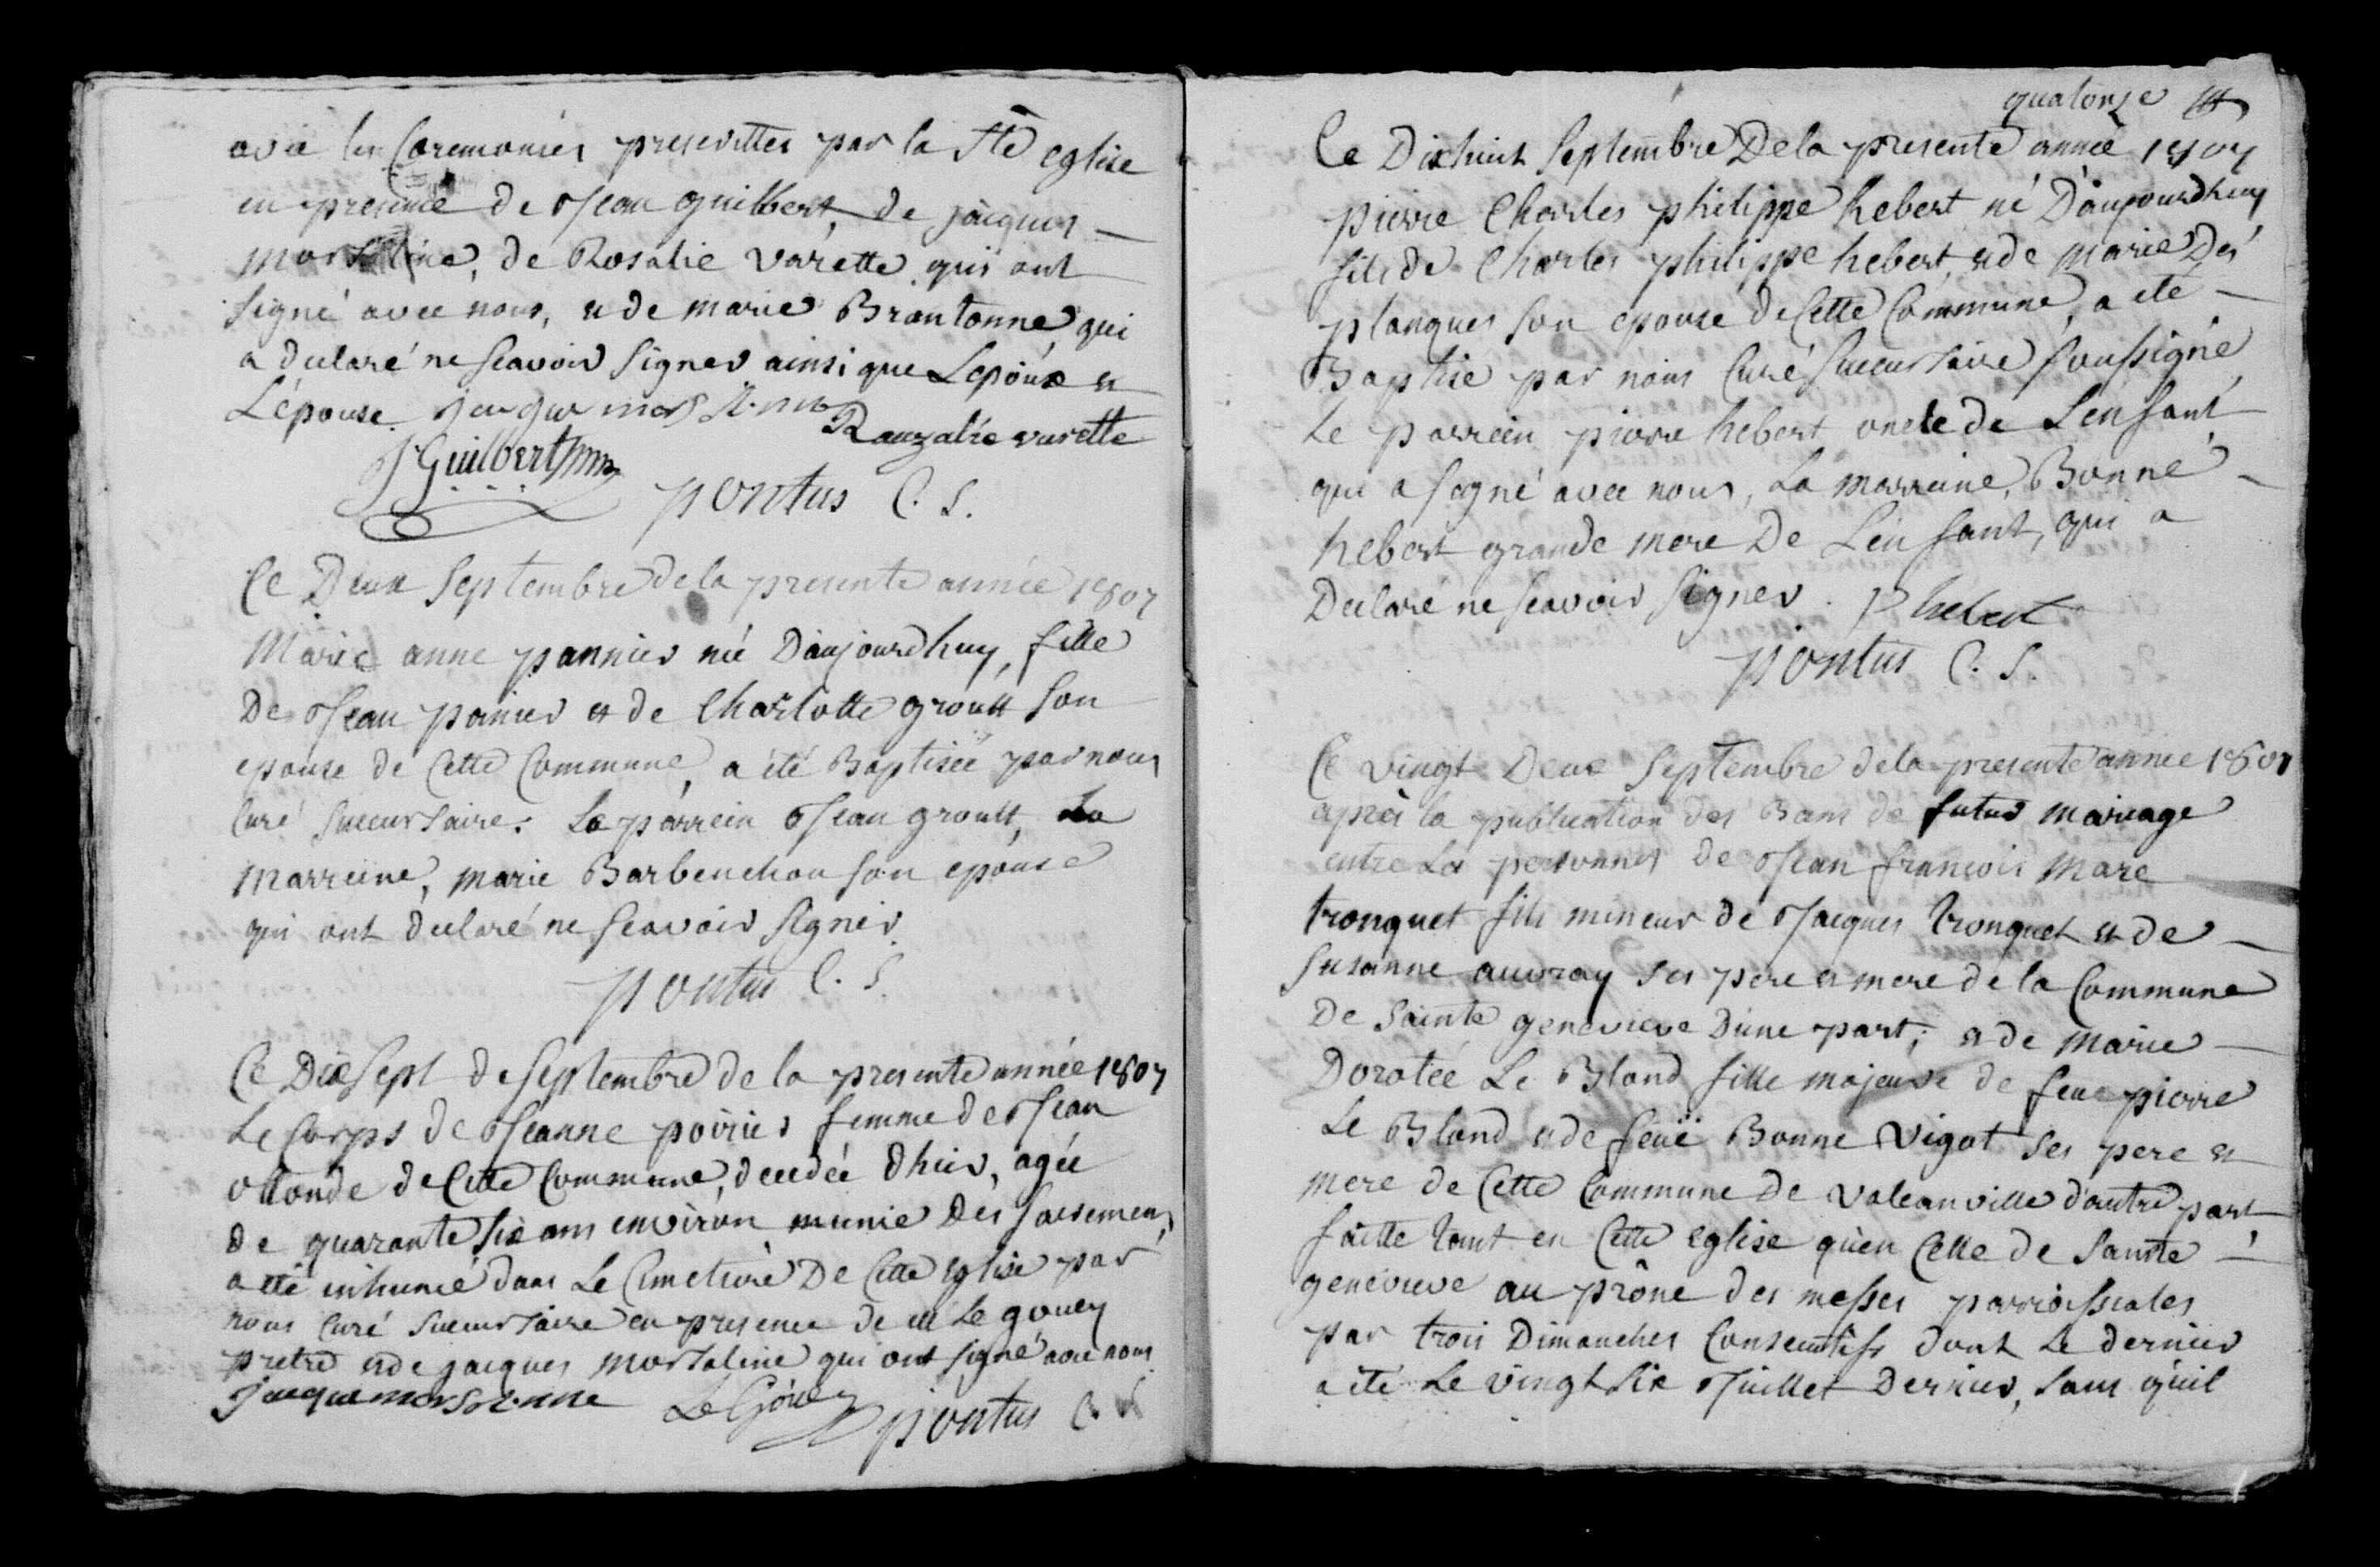 avec les Ceremonies prescrittes par la Ste eglise
en presence de Jean Guilbert, de jacques
morsaline, de Rosalie varette qui ont
signé avec nous, et de marie Brantonne, qui
a declaré ne scavoir signer ainsi que L'epoux et
L'épouse.
Rauzalie varette
J Guilbert
pontus C. S.
Ce Deux Septembre de la presente année 1807
Marie anne pannier né D'aujourdhuy, fille
De Jean panier et de Charlotte groult son
epouse de Cette Commune, a été Baptisée par nous
Curé Succursaire. Le parrein Jean groult, La
Marreine, marie Barbenchon son epouse
qui ont declaré ne scavoir signer.
pontus C. S.
Ce Dix Sept de Septembre de la presente année 1807
Le Corps de Jeanne poirier femme de Jean
ottonde de Cette Commune, decedée d'hier, agée
de quarante six ans environ munie Des sacremens,
a été inhumé dans Le Cimetiere De Cette Eglise par
nous Curé Succursaire en presence de M Le gouey
pretre et de jacques morsaline qui ont signé avec nous
Le Goüey pontus C. S.
quatorze
Ce Dixhuit Septembre De la presente année 1807
pierre Charles philippe hebert né D'aujourdhuy
fils de Charles philippe hebert, et de Marie Des
planques son epouse de Cette Commune, a eté
Baptisé par nous Curé Succursaire soussigné
Le parrein pierre hebert oncle de L'enfant
qui a signé avec nous, La marreine, Bonne
hebert grande mere De L'enfant, qui a
Declaré ne scavoir signer. P hebert
pontus C. S.
Ce vingt Deux Septembre de la presente année 1807
après la publication des Bans de futur mariage
entre Les personnes de Jean françois Marc
tronquet fils mineur de Jacques tronquet et de
Susanne auvray ses pere et mere de la Commune
De Sainte genevieve D'une part; et de Marie
Dorotée Le Blond fille majeure de feu pierre
Le Blond et de feuë Bonne Vigot ses pere et
mere de Cette Commune de Valcanville d'autre part
faitte tant en Cette eglise qu'en Celle de Sainte
genevieve au prône des messes parroissiales
par trois Dimanches Consecutifs dont Le dernier
a eté Le vingt Six Juillet Dernier, sans qu'il